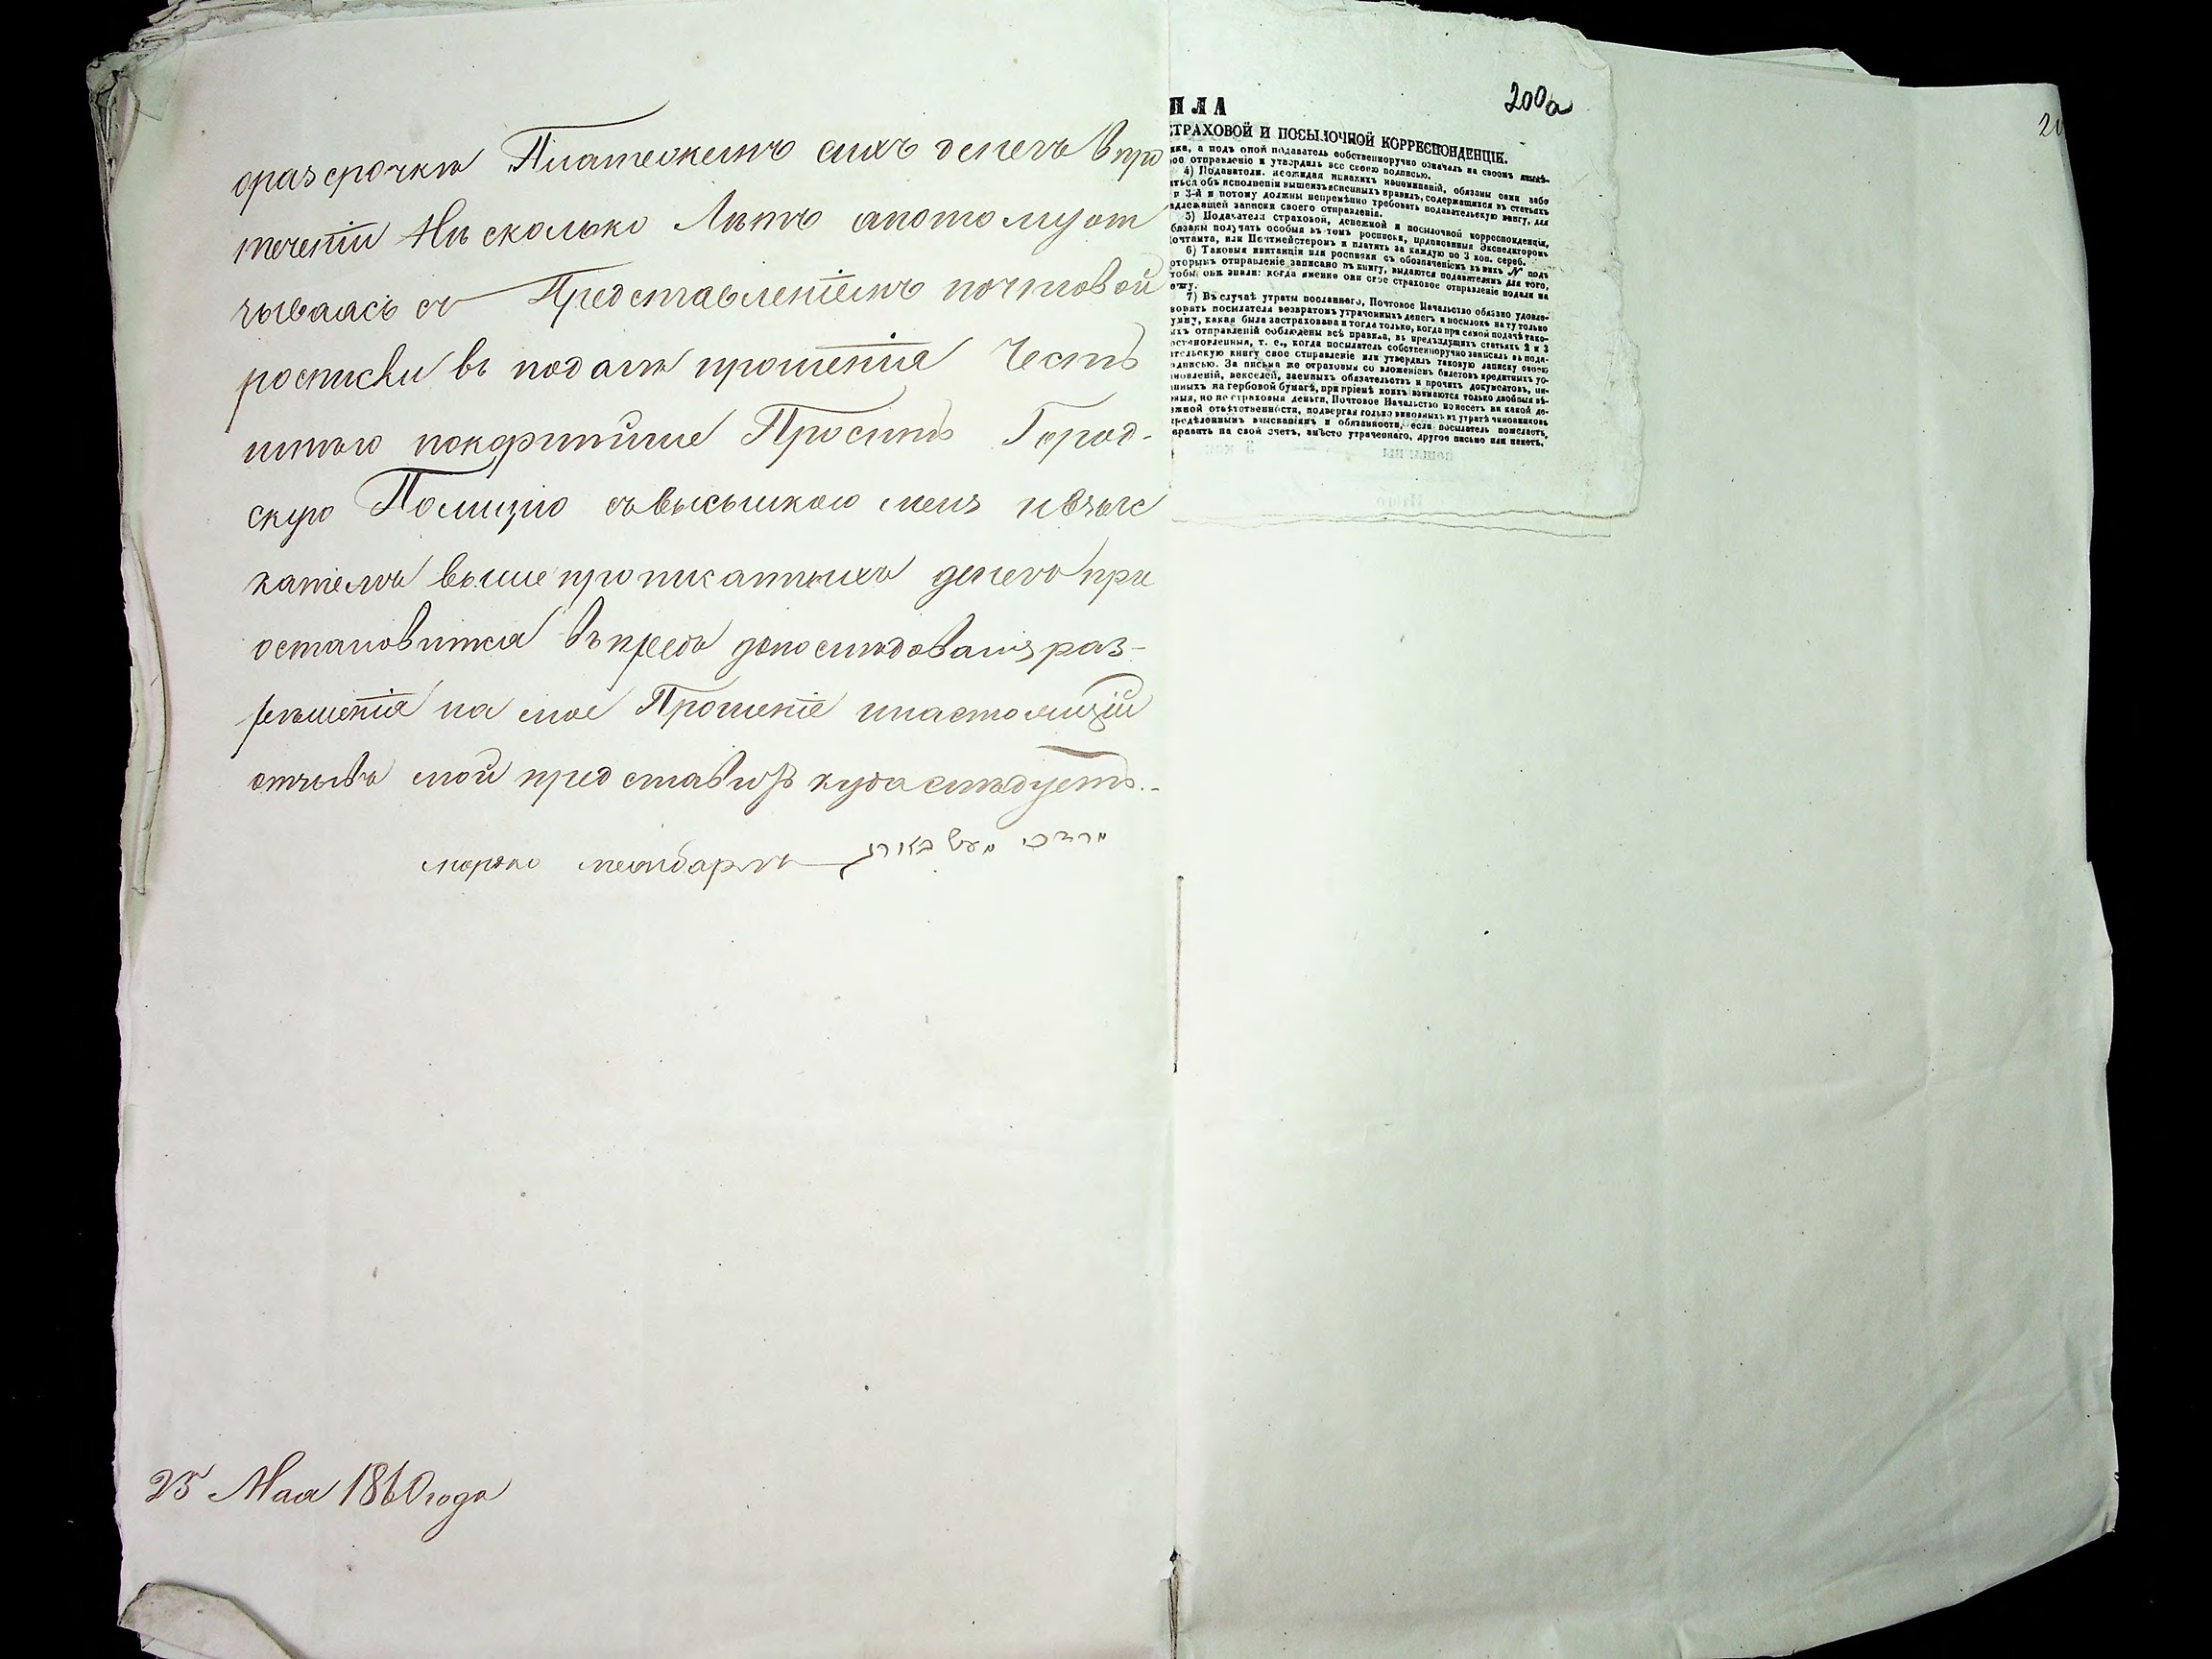 оразсрочкѣ Платежемъ сихъ денегъ впро
теченіи Нѣсколько Лѣтъ апотому от
зываясь съ Представленіемъ почтовой
росписки въ подачѣ прошенія Честь
имѣю покорнѣйше Просить Город-
скую Полицію съвысылкою меня
выше прописанныхъ денегъ при
остановится въпредь допослѣдованія раз-
рѣшенія на мое Прошеніе инастоящій
отзывъ мой представить куда слѣдуетъ.-
25 Мая 1860 года
200а
ПЛА
СТРАХОВОЙ И ПОСЫЛОЧНОЙ КОРРЕСПОНДЕНЦІИ.
ика, а подъ оной подаватель собственноручно означалъ на своемъ языкѣ-
ое отправленіе и утвердилъ все своею подписью.
4) Подаватели, неожидая никакихъ напоминаній, обязаны сами забо
иться объ исполненіи вышеизъясненныхъ правилъ, содержащихся въ статьяхъ
и 3-й и потому должны непремѣнно требовать подавательскую книгу, для
адлежащей записки своего отправленія.
5) Подаватели страховой, денежной и посылочной корреспонденціи,
бязаны получать особыя въ томъ росписки, подписанныя Экспедиторомъ
очтамта, или Почтмейстеромъ и платить за каждую по 3 коп. сереб.
6) Таковыя квитанціи или росписки съ обозначеніемъ въ нихъ N подъ
оторымъ отправленіе записано въ книгу, выдаются подавателямъ для того,
тобы они знали: когда именно они свое страховое отправленіе подали на
очту.
7) Въ случаѣ утраты посланнаго, Почтовое Начальство обязано удовле-
ворить посылателя возвратомъ утраченныхъ денегъ и посылокъ на ту только
умму, какая была застрахована и тогда только, когда при самой подачѣ тако-
ыхъ отправленій соблюдены всѣ правила, въ предъидущихъ статьяхъ 2 и 3
остановленныя, т. е., когда посылатель собственноручно записалъ въ пода-
ательскую книгу свое отправленіе или утвердилъ таковую записку своею
одписью. За письма же страховыя со вложеніемъ билетовъ кредитныхъ ус-
ановленій, векселей, заемныхъ обязательствъ и прочихъ документовъ, пи-
анныхъ на гербовой бумагѣ, при пріемѣ коихъ взимаются только двойныя вѣ-
овыя, но не страховыя деньги, Почтовое Начальство не несетъ ни какой де-
ежной отвѣтственности, подвергая только виновныхъ въ утратѣ чиновниковъ
предѣленнымъ взысканіямъ и обязанности, если посылатель пожелаетъ,
правлять на свой счетъ, вмѣсто утраченнаго, другое письмо или пакетъ.